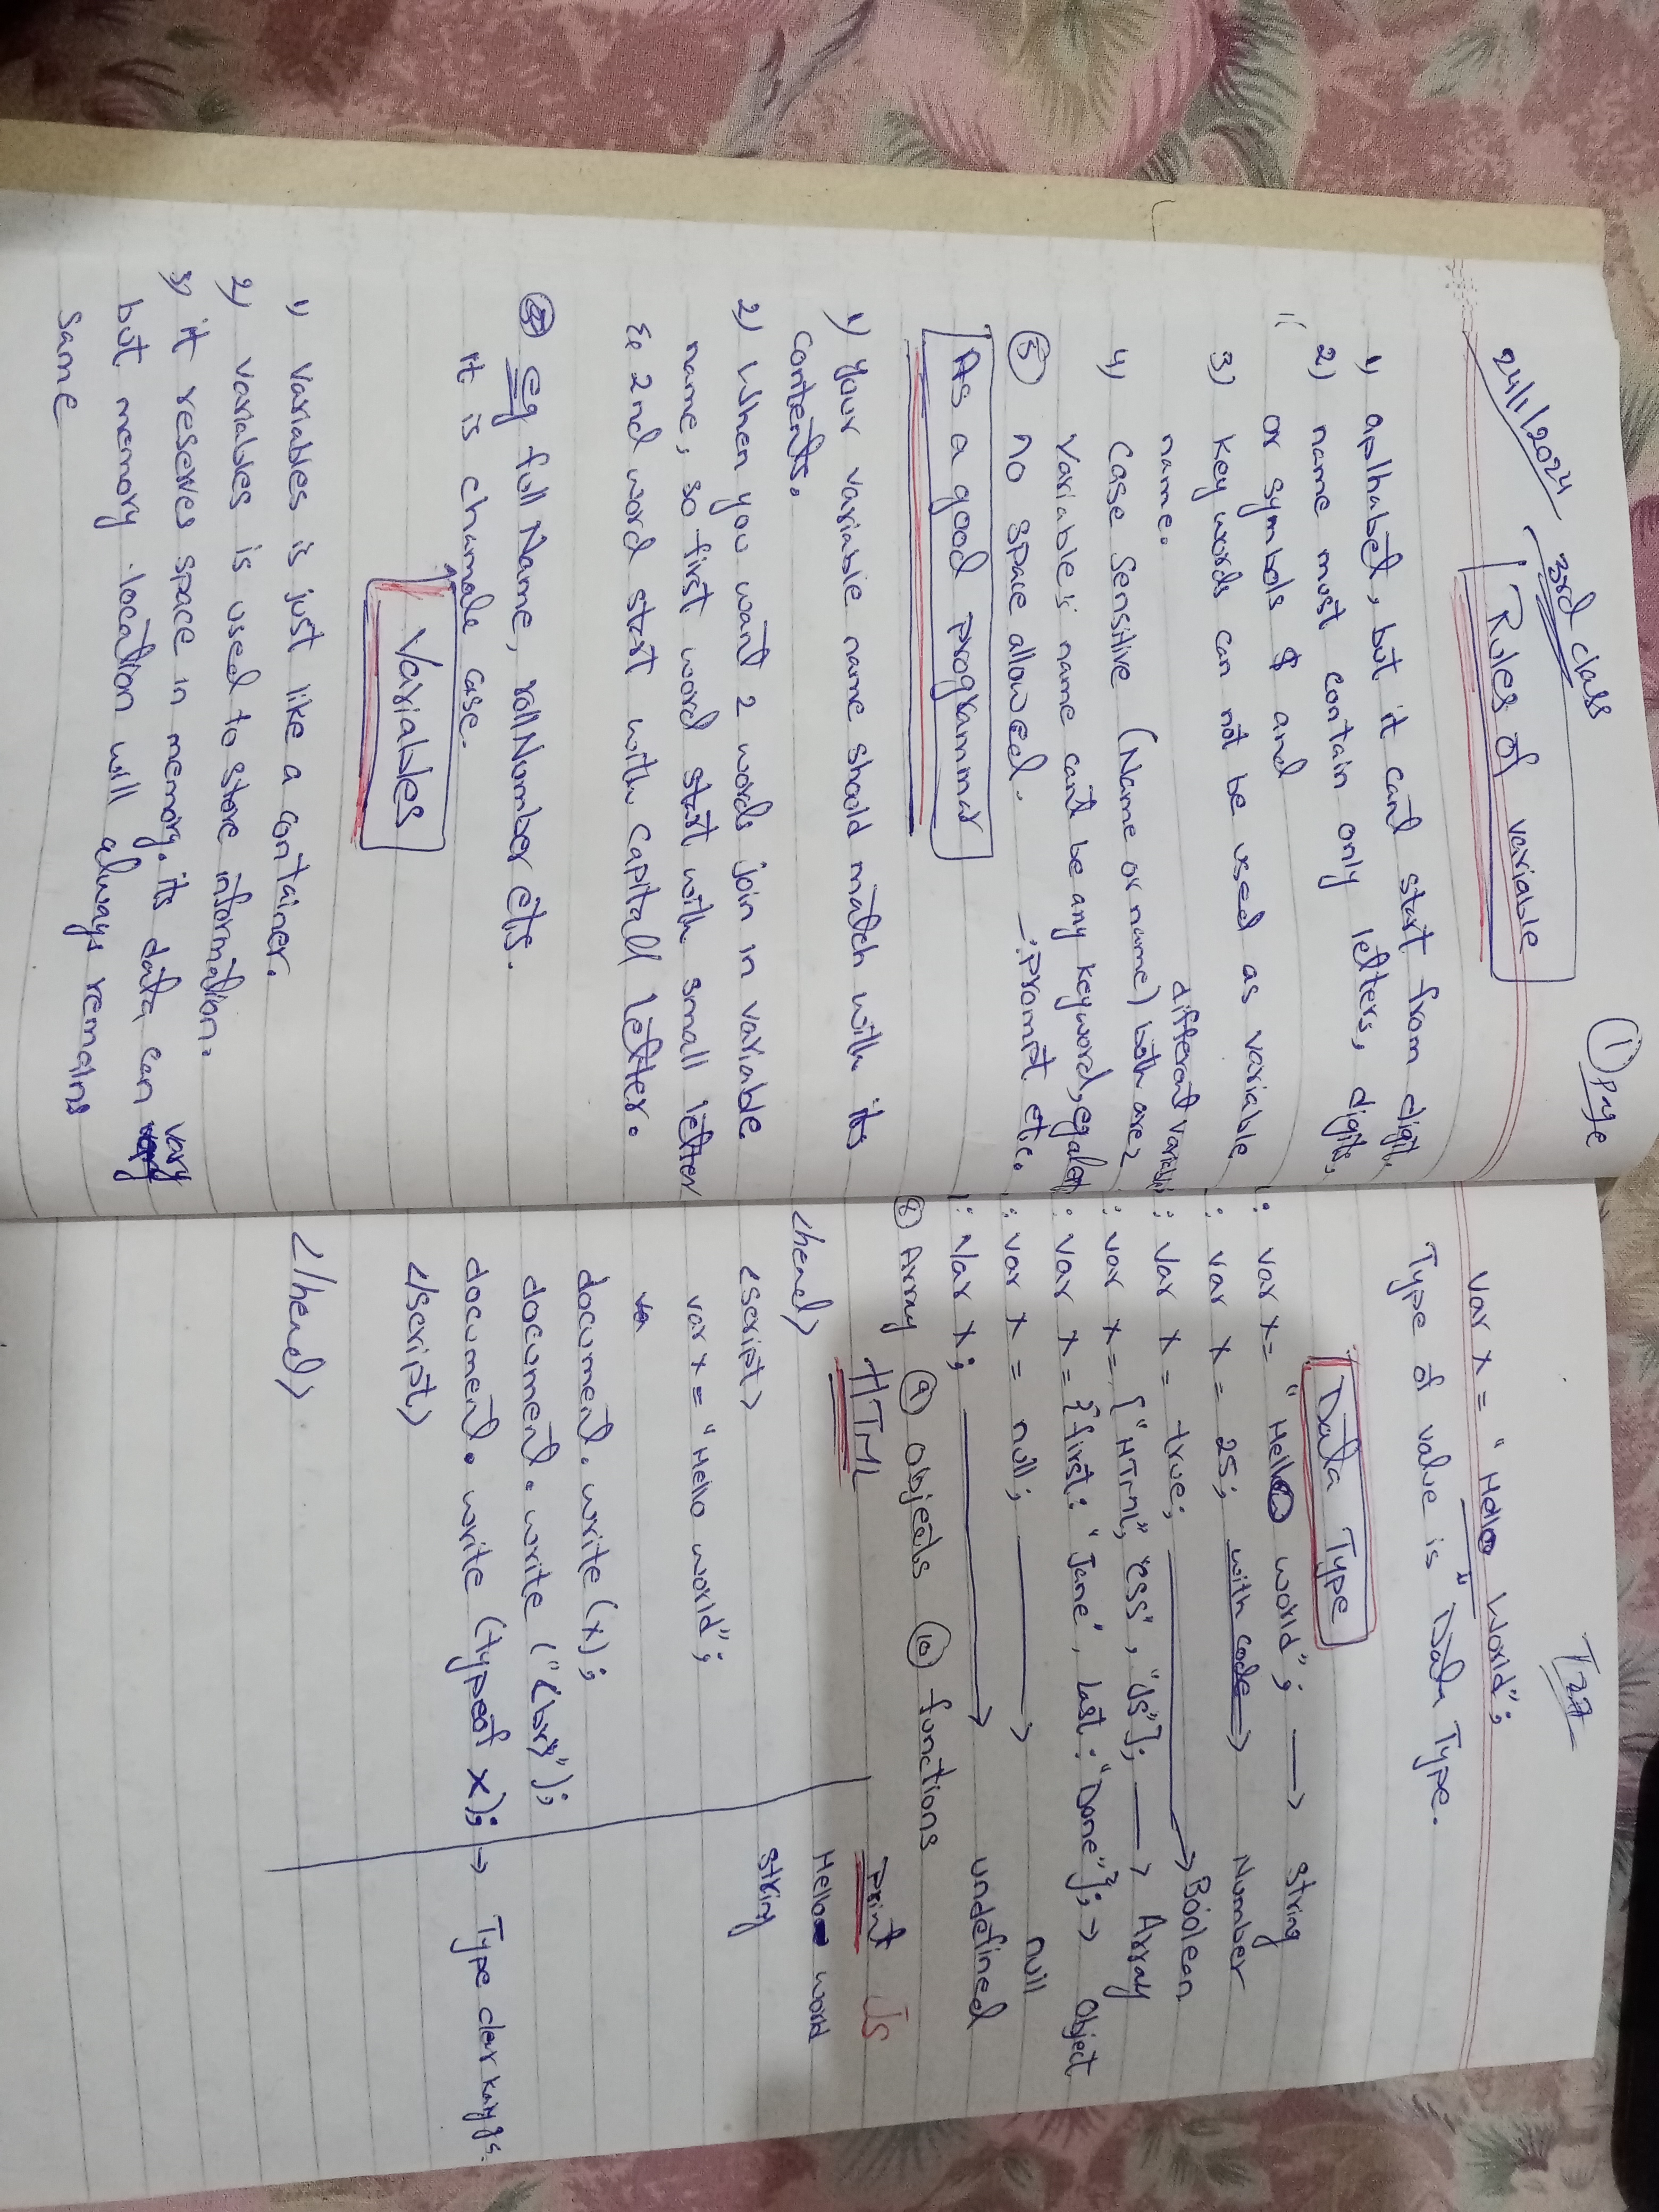 ① Page
24/1/2024 3rd class
Rules of variable
1) aplhabet, but it can't start from digit.
2) name must contain only letters, digits,
or symbols $ and
3) key words can not be used as variable
name.
different variable
4) case Sensitive (Name or name) both are 2
Variable's name can't be any keyword, eg alert
⑤ no space allowed. prompt etc.
As a good programmar
1) your variable name should match with its
contents.
2) When you want 2 words join in variable
name, so first word start with small letter
& 2nd word start with capitall letter.
eg full Name, rollNumber ets.
it is chamale case.
Variables
1) variables is just like a container.
2) variables is used to store information.
3) it reserves space in memory. its data can vary
but memory location will always remains
same
var x = "Hello World";
Type of value is "Data Type.
Data Type
: var x = "Hello world"; → string
: var x = 25; with code → Number
: var x = true; → Boolean
: var x = ["HTML", "CSS", "JS"]; → Array
: var x = {first: "Jane", last: "Done"}; → object
: var x = null; → null
: var x; → undefined
⑧ Array ⑨ objects ⑩ functions
HTML print Js
<head> Hello world
<script> string
var x = "Hello world";
document.write (x);
document.write ("<br>");
document.write (typeof x); → Type
</script>
</head>